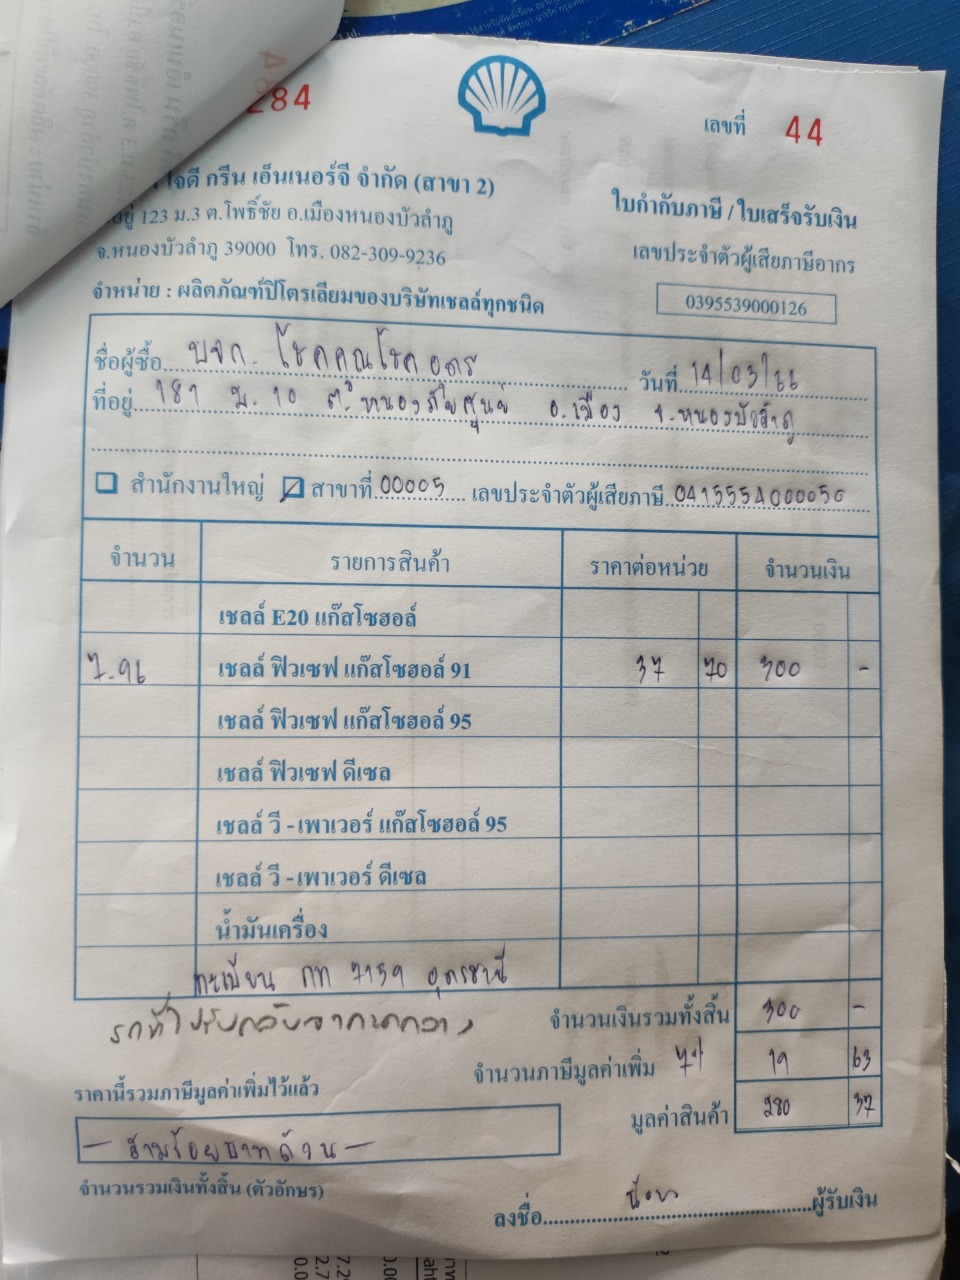 284
เลขที่ 44
เจดี กรีน เอ็นเนอร์จี จำกัด (สาขา 2)
ใบกำกับภาษี / ใบเสร็จรับเงิน
อยู่ 123 ม.3 ต.โพธิ์ชัย อ.เมืองหนองบัวลำภู
จ.หนองบัวลำภู 39000 โทร. 082-309-9236
เลขประจำตัวผู้เสียภาษีอากร
0395539000126
จำหน่าย : ผลิตภัณฑ์ปิโตรเลียมของบริษัทเชลล์ทุกชนิด
ชื่อผู้ซื้อ บจก. โชคคุณโชค อุดร วันที่ 14/03/66
ที่อยู่ 181 ม.10 ต. หนองภัยศูนย์ อ.เมือง จ.หนองบัวลำภู
สำนักงานใหญ่ สาขาที่ 00005 เลขประจำตัวผู้เสียภาษี 0415554000050
จำนวน รายการสินค้า ราคาต่อหน่วย จำนวนเงิน
เชลล์ E20 แก๊สโซฮอล์
7.96 เชลล์ ฟิวเซฟ แก๊สโซฮอล์ 91 37 70 300 -
เชลล์ ฟิวเซฟ แก๊สโซฮอล์ 95
เชลล์ ฟิวเซฟ ดีเซล
เชลล์ วี - เพาเวอร์ แก๊สโซฮอล์ 95
เชลล์ วี - เพาเวอร์ ดีเซล
น้ำมันเครื่อง
ทะเบียน กท 7159 อุดรธานี
จำนวนเงินรวมทั้งสิ้น 300 -
จำนวนภาษีมูลค่าเพิ่ม 7% 19 63
ราคานี้รวมภาษีมูลค่าเพิ่มไว้แล้ว
มูลค่าสินค้า 280 37
- สามร้อยบาทถ้วน -
จำนวนรวมเงินทั้งสิ้น (ตัวอักษร)
ลงชื่อ ผู้รับเงิน